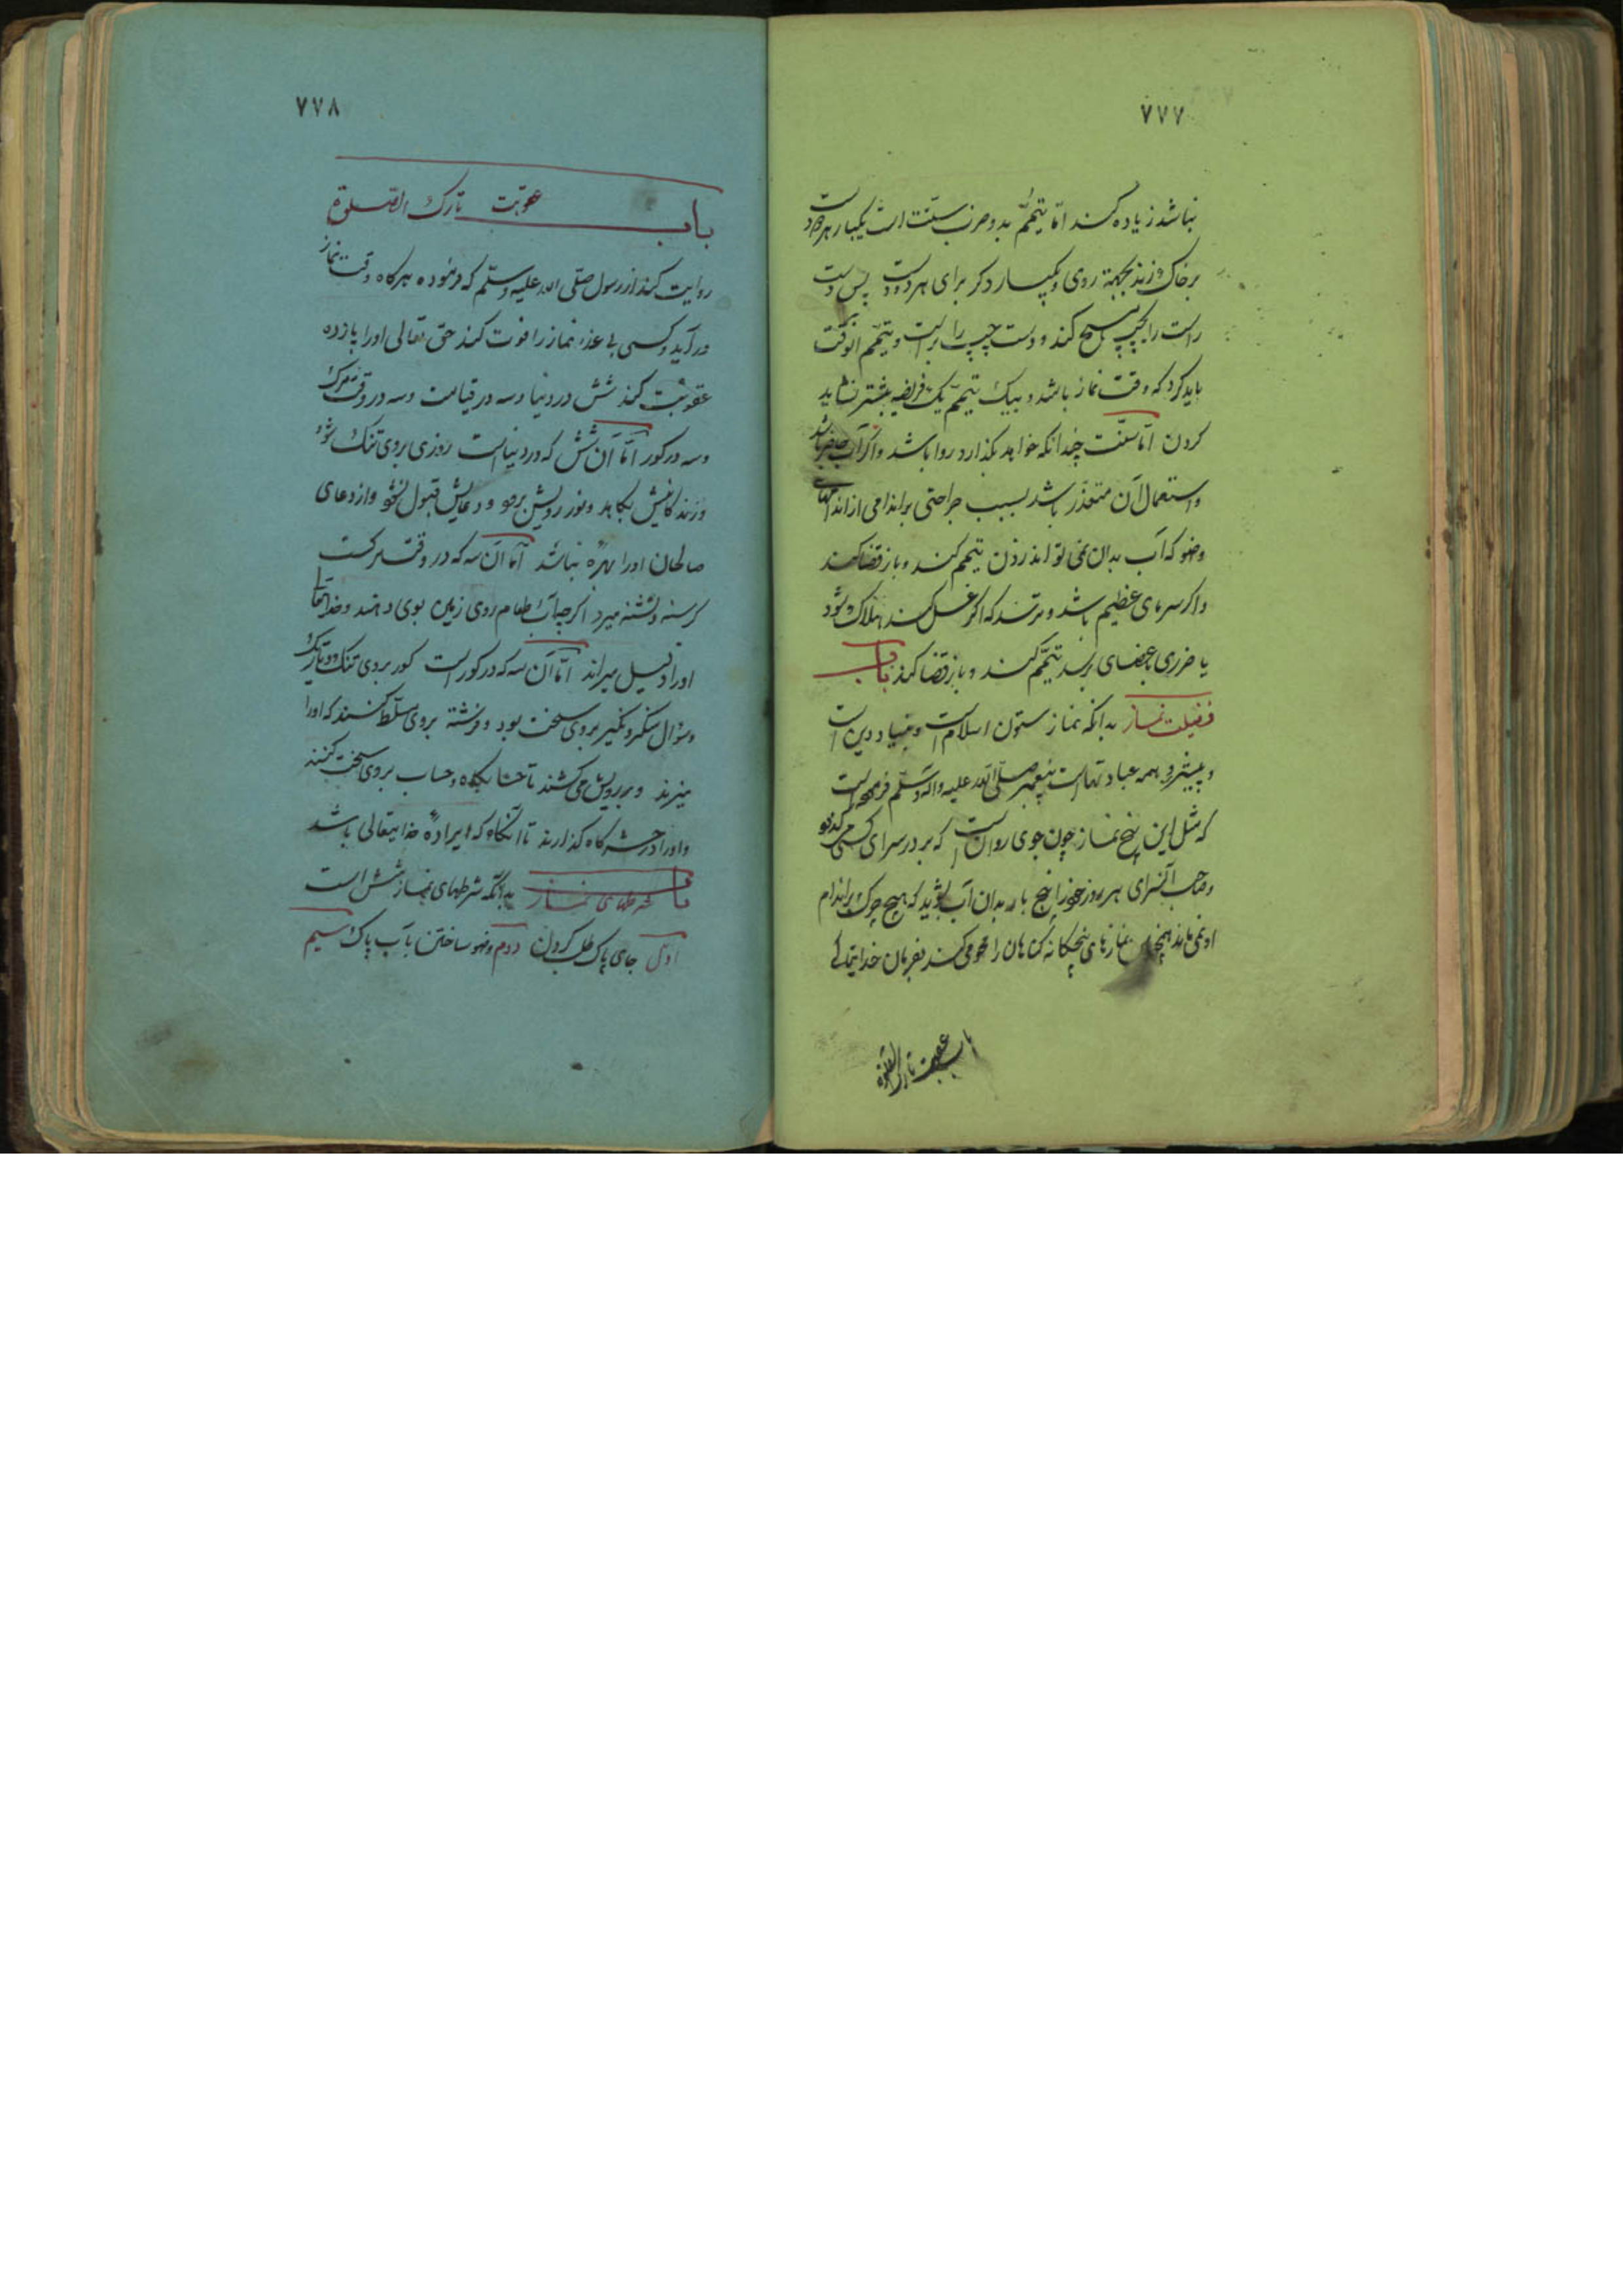 ۷۷۷
نباشد زیاده کند امّا تیمّم بدو ضرب سنّت است یکبار هر دو دست
بر خاک زند بجهة روی و یکبار دکر برای هر دو دست پس دست
راست را بچپ مسح کند و دست چپ را براست و تیمّم انوقت
باید کرد که وقت نماز باشد و بیک تیمّم یک فریضه بیشتر نشاید
کردن امّا سنّت چندانکه خواهد بکذارد روا باشد و اکر آب حاضر باشد
و استعمال آن متعذّر باشد بسبب جراحتی بر اندامی از اندامهای
وضو که آب بدان نمی تواند زدن تیمم کند و باز قضا کند
و اکر سرمای عظیم باشد و ترسد که اکر غسل کند هلاک شود
یا ضرری بعضای برسد تیمّم کند و باز قضا کند باب
فضیلت نماز بدانکه نماز ستون اسلام است و بنیاد دین است
و پیشرو همه عبادتهاست پیغمبر صلّی الله علیه واله وسلّم فرموده است
که مثل این پنج نماز چون جوی روانست که بر در سرای کسی میکذرد
و صاحب آنسرای هر روز خود را پنج بار بدان آب بشوید که هیچ چرک بر اندام
او نمی ماند همچنان نمازهای پنجکانه کناهان را محو می کند بفرمان خدایتعالی
باب عقوبت تارک الصلوة
۷۷۸
باب عقوبت تارک الصلوة
روایت کنند از رسول صلّی الله علیه وسلّم که فرموده هرکاه وقت نماز
درآید و کسی بی عذر نماز را فوت کند حق تعالی او را پانزده
عقوبت کند شش در دنیا و سه در قیامت و سه در وقت مرک
و سه در کور امّا آن شش که در دنیاست روزی بروی تنک شود
و زندکانیش بکاهد و نور رویش برود و دعایش قبول نشود و از دعای
صالحان او را بهرهٔ نباشد امّا آن سه که در وقت مرکست
کرسنه و تشنه میرد اکرچه آب و طعام روی زمین بوی دهند و خدایتعالی
او را ذلیل میراند امّا آن سه که در کور است کور بروی تنک و تاریک
و سؤال منکر و نکیر بروی سخت بود و فرشته بروی مسلّط کنند که او را
میزند و بر رویش می کشند تا حشرگاه و حساب بروی سخت کنند
و او را در حشرگاه کذارند تا آنکاه که ارادهٔ خدایتعالی باشد
باب شرطهای نماز بدانکه شرطهای نماز شش است
اوّل جای پاک طلب کردن دوم وضو ساختن بآب پاک سیم